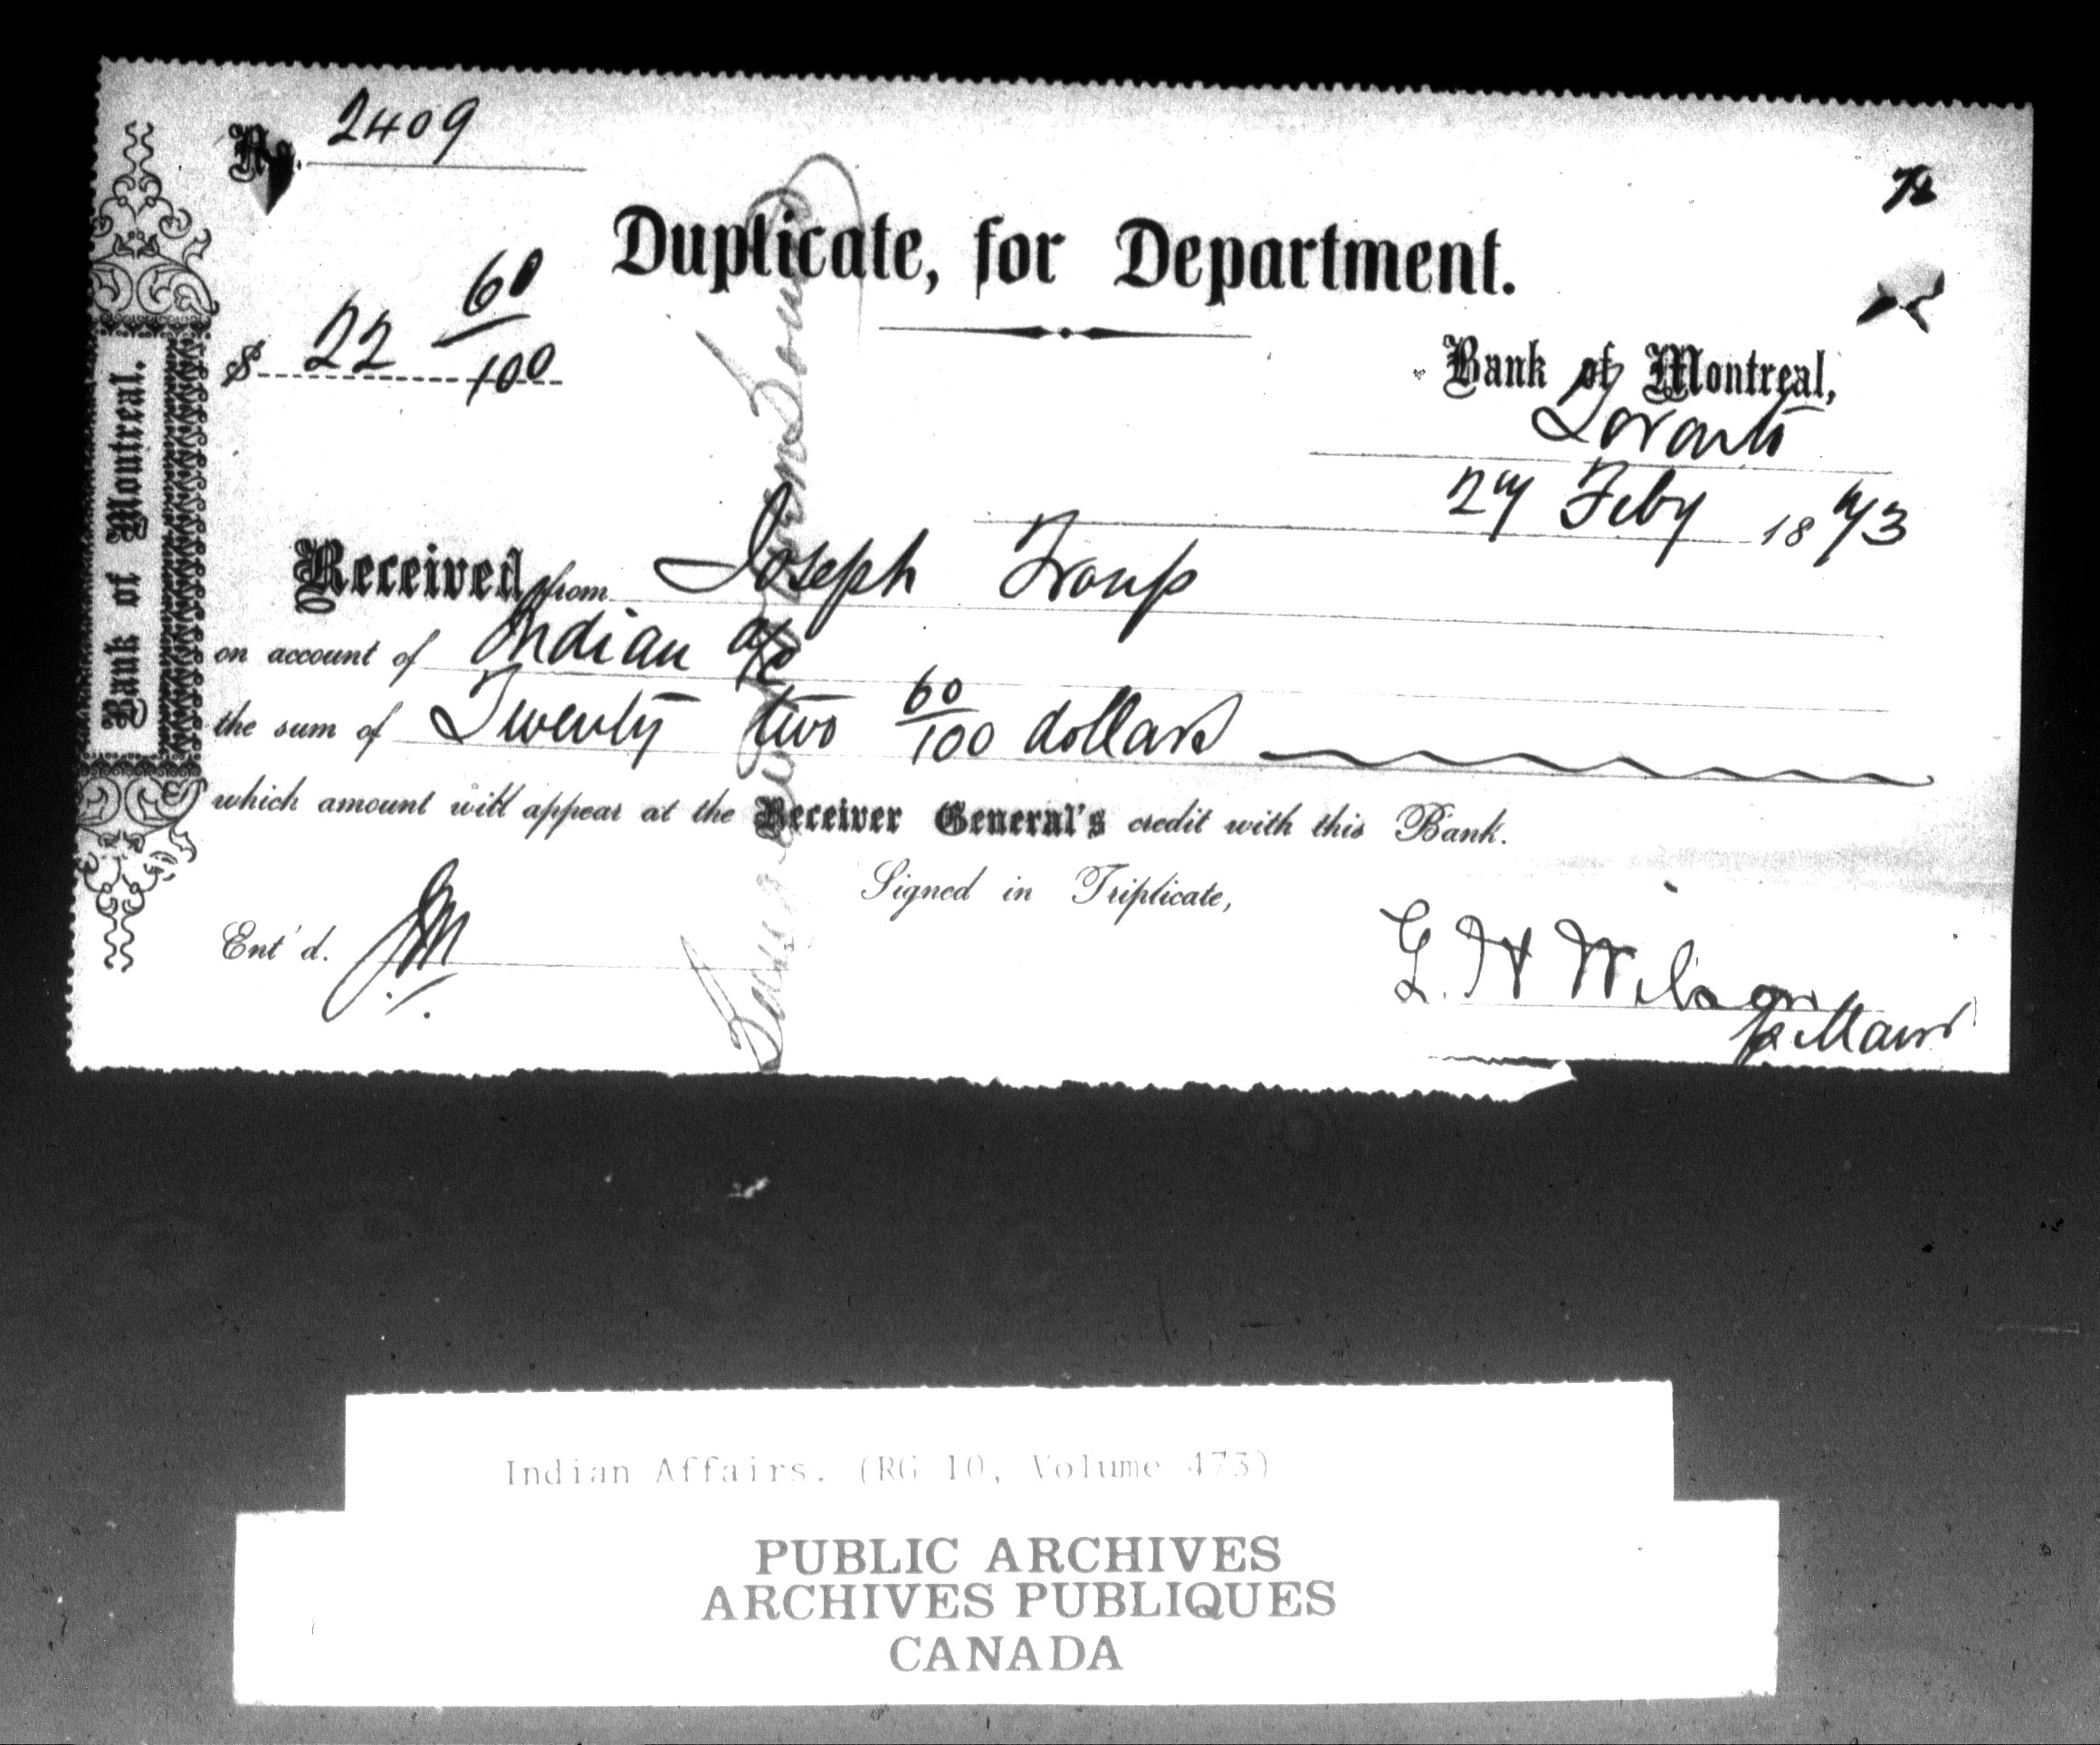 No. 2409
72
Duplicate, for Department.
$ 22 60/100
Bank of Montreal,
Toronto
27 Feby 1873
Received from Joseph Troup
on account of Indian a/c
the sum of Twenty two 60/100 dollars
which amount will appear at the Receiver General's credit with this Bank.
Signed in Triplicate,
Ent'd. JM
G. H Wilson
p Man
Bank of Montreal.
Indian Affairs. (RG 10, Volume 473)
PUBLIC ARCHIVES
ARCHIVES PUBLIQUES
CANADA